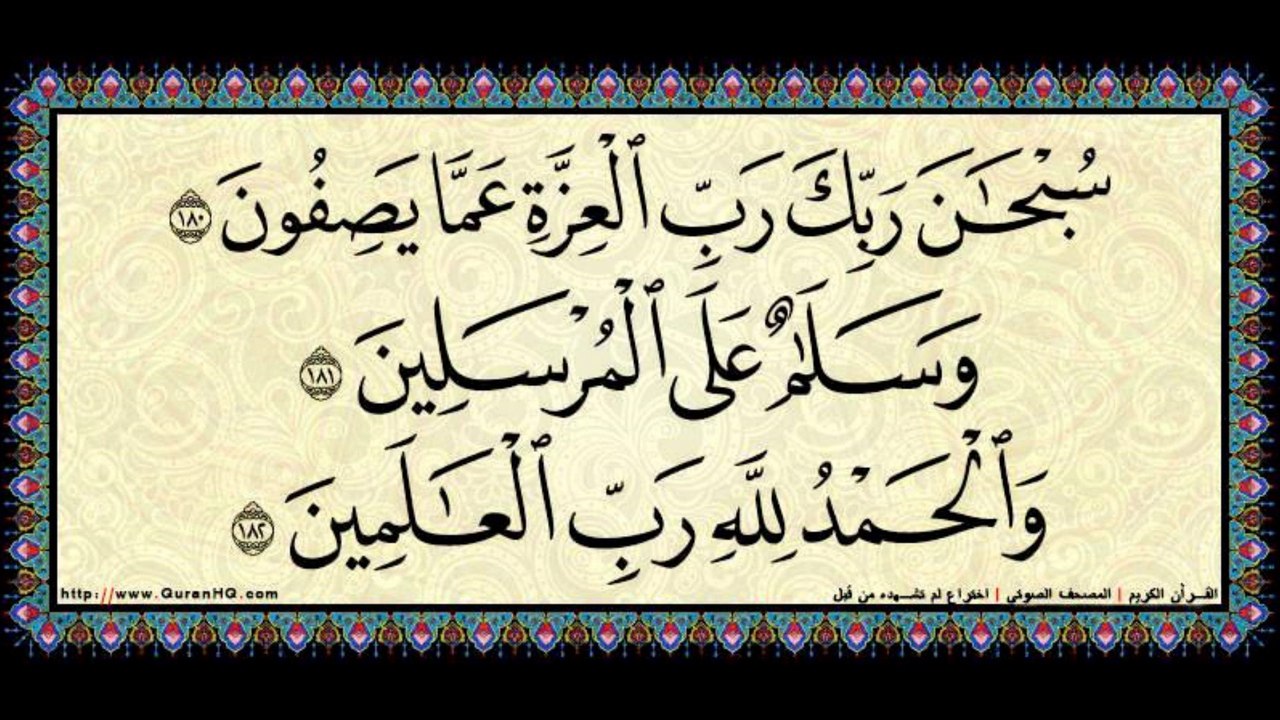 سُبْحَـٰنَ رَبِّكَ رَبِّ ٱلْعِزَّةِ عَمَّا يَصِفُونَ ١٨٠
وَسَلَـٰمٌ عَلَى ٱلْمُرْسَلِينَ ١٨١
وَٱلْحَمْدُ لِلَّهِ رَبِّ ٱلْعَـٰلَمِينَ ١٨٢
القـرآن الكريم | المصحف الصوتي | اختراع لم تشهده من قبل
http://www.QuranHQ.com